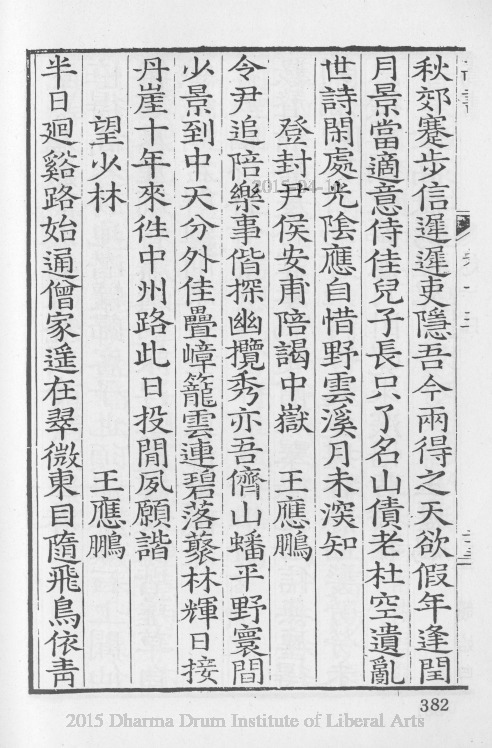 秋郊蹇步信遲遲吏隱吾今兩得之天欲假年逢閏
月景當適意侍佳兒子長只了名山債老杜空遺亂
世詩閑處光陰應自惜野雲溪月未深知
登封尹侯安甫陪謁中嶽 王應鵬
令尹追陪樂事偕探幽攬秀亦吾儕山蟠平野寰間
少景到中天分外佳疊嶂籠雲連碧落藂林輝日接
丹崖十年來徃中州路此日投閒夙願諧
望少林 王應鵬
半日廻谿路始通僧家遥在翠微東目隨飛鳥依青
382
2015 Dharma Drum Institute of Liberal Arts